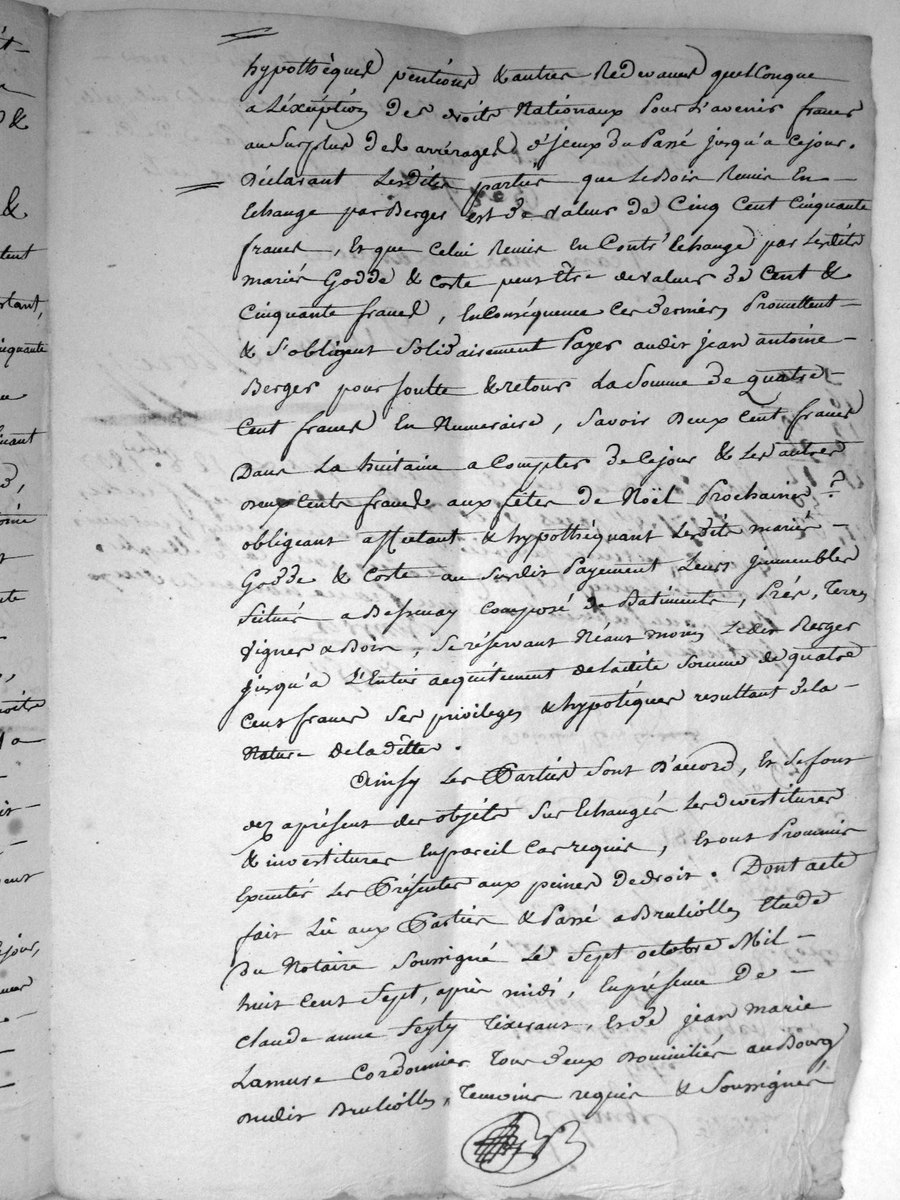 hypothèques pentions & autres Redevances quelconque
a L'éxéption des droits Nationaux pour L'avenir francs
au Surplus des arrérages d'iceux du Passé jusqu'a cejour.
Déclarant Lesdites parties que Le Bois Remis En
Echange par Berger est de valeur de Cinq Cent Cinquante
francs, Et que Celui Remis En Contr'Echange par Lesdits
mariés Godde & Coste peut être de valeur de Cent &
Cinquante francs, En Conséquence Ces derniers Promettent
& S'obligent Solidairement Payer audit jean antoine
Berger pour soulte & retour La Somme de quatre
Cent francs En Numeraire, Savoir Deux Cent francs
Dans La huitaine a Compter de Cejour & Les autres
deux Cents francs aux fêtes de Noël Prochaines
obligeant affectant & hypothéquant Lesdits mariés
Godde & Coste au Susdit Payement Leurs immeubles
Scitués a Bessenay Composé de Batiments, Prés, Terres
Vignes & Bois, Se réservant Néant moins Ledit Berger
jusqu'a L'Entier acquitement de ladite Somme de quatre
Cent francs Ses privileges & hypotéques resultant de la
Nature de la dêtte.
Ainsy Les Parties Sont D'accord, Et Se font
dez a présent des objets Sur Echangés Les devestitures
& investitures En pareil Cas requis, Et ont Prommis
Exécuter Les Présentes aux peines de droit. Dont acte
fait Lû aux Parties & Passé a Brulliolles Etude
Du Notaire Soussigné Le Sept octobre Mil
huit Cent Sept, après midi, En présence De
Claude anne Tixerant, Et de jean marie
Lamure Cordonnier Tous deux Domiciliés au Bourg
dudit Brulliolles, Temoins requis & Soussignés